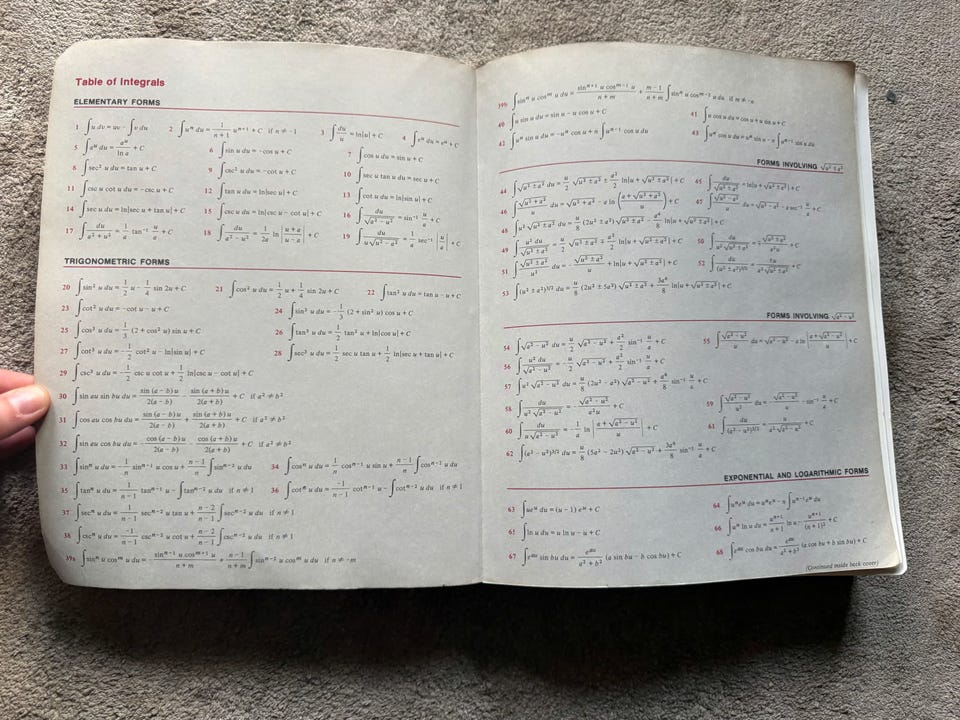 Table of Integrals
ELEMENTARY FORMS
1 ∫u dv = uv − ∫v du 2 ∫uⁿ du = 1/(n+1) uⁿ⁺¹ + C if n ≠ −1 3 ∫du/u = ln|u| + C 4 ∫eᵘ du = eᵘ + C
5 ∫aᵘ du = aᵘ/ln a + C 6 ∫sin u du = −cos u + C 7 ∫cos u du = sin u + C
8 ∫sec² u du = tan u + C 9 ∫csc² u du = −cot u + C 10 ∫sec u tan u du = sec u + C
11 ∫csc u cot u du = −csc u + C 12 ∫tan u du = ln|sec u| + C 13 ∫cot u du = ln|sin u| + C
14 ∫sec u du = ln|sec u + tan u| + C 15 ∫csc u du = ln|csc u − cot u| + C 16 ∫du/√(a² − u²) = sin⁻¹ u/a + C
17 ∫du/(a² + u²) = 1/a tan⁻¹ u/a + C 18 ∫du/(a² − u²) = 1/2a ln|(u+a)/(u−a)| + C 19 ∫du/(u√(u² − a²)) = 1/a sec⁻¹|u/a| + C
TRIGONOMETRIC FORMS
20 ∫sin² u du = 1/2 u − 1/4 sin 2u + C 21 ∫cos² u du = 1/2 u + 1/4 sin 2u + C 22 ∫tan² u du = tan u − u + C
23 ∫cot² u du = −cot u − u + C 24 ∫sin³ u du = −1/3 (2 + sin² u) cos u + C
25 ∫cos³ u du = 1/3 (2 + cos² u) sin u + C 26 ∫tan³ u du = 1/2 tan² u + ln|cos u| + C
27 ∫cot³ u du = −1/2 cot² u − ln|sin u| + C 28 ∫sec³ u du = 1/2 sec u tan u + 1/2 ln|sec u + tan u| + C
29 ∫csc³ u du = −1/2 csc u cot u + 1/2 ln|csc u − cot u| + C
30 ∫sin au sin bu du = sin (a − b)u/2(a − b) − sin (a + b)u/2(a + b) + C if a² ≠ b²
31 ∫cos au cos bu du = sin (a − b)u/2(a − b) + sin (a + b)u/2(a + b) + C if a² ≠ b²
32 ∫sin au cos bu du = −cos (a − b)u/2(a − b) − cos (a + b)u/2(a + b) + C if a² ≠ b²
33 ∫sinⁿ u du = −1/n sinⁿ⁻¹ u cos u + (n−1)/n ∫sinⁿ⁻² u du 34 ∫cosⁿ u du = 1/n cosⁿ⁻¹ u sin u + (n−1)/n ∫cosⁿ⁻² u du
35 ∫tanⁿ u du = 1/(n−1) tanⁿ⁻¹ u − ∫tanⁿ⁻² u du if n ≠ 1 36 ∫cotⁿ u du = −1/(n−1) cotⁿ⁻¹ u − ∫cotⁿ⁻² u du if n ≠ 1
37 ∫secⁿ u du = 1/(n−1) secⁿ⁻² u tan u + (n−2)/(n−1) ∫secⁿ⁻² u du if n ≠ 1
38 ∫cscⁿ u du = −1/(n−1) cscⁿ⁻² u cot u + (n−2)/(n−1) ∫cscⁿ⁻² u du if n ≠ 1
39a ∫sinⁿ u cosᵐ u du = −sinⁿ⁻¹ u cosᵐ⁺¹ u/(n+m) + (n−1)/(n+m) ∫sinⁿ⁻² u cosᵐ u du if n ≠ −m
39b ∫sinⁿ u cosᵐ u du = sinⁿ⁺¹ u cosᵐ⁻¹ u/(n+m) + (m−1)/(n+m) ∫sinⁿ u cosᵐ⁻² u du if m ≠ −n
40 ∫u sin u du = sin u − u cos u + C 41 ∫u cos u du = cos u + u sin u + C
42 ∫uⁿ sin u du = −uⁿ cos u + n ∫uⁿ⁻¹ cos u du 43 ∫uⁿ cos u du = uⁿ sin u − n ∫uⁿ⁻¹ sin u du
FORMS INVOLVING √(u² ± a²)
44 ∫√(u² ± a²) du = u/2 √(u² ± a²) ± a²/2 ln|u + √(u² ± a²)| + C 45 ∫du/√(u² ± a²) = ln|u + √(u² ± a²)| + C
46 ∫√(u² + a²)/u du = √(u² + a²) − a ln((a + √(u² + a²))/u) + C 47 ∫√(u² − a²)/u du = √(u² − a²) − a sec⁻¹ u/a + C
48 ∫u² √(u² ± a²) du = u/8 (2u² ± a²) √(u² ± a²) − a⁴/8 ln|u + √(u² ± a²)| + C
49 ∫u² du/√(u² ± a²) = u/2 √(u² ± a²) ∓ a²/2 ln|u + √(u² ± a²)| + C 50 ∫du/(u²√(u² ± a²)) = ∓√(u² ± a²)/a²u + C
51 ∫√(u² ± a²)/u² du = −√(u² ± a²)/u + ln|u + √(u² ± a²)| + C 52 ∫du/(u² ± a²)³ᐟ² = ±u/(a²√(u² ± a²)) + C
53 ∫(u² ± a²)³ᐟ² du = u/8 (2u² ± 5a²) √(u² ± a²) + 3a⁴/8 ln|u + √(u² ± a²)| + C
FORMS INVOLVING √(a² − u²)
54 ∫√(a² − u²) du = u/2 √(a² − u²) + a²/2 sin⁻¹ u/a + C 55 ∫√(a² − u²)/u du = √(a² − u²) − a ln|(a + √(a² − u²))/u| + C
56 ∫u² du/√(a² − u²) = −u/2 √(a² − u²) + a²/2 sin⁻¹ u/a + C
57 ∫u² √(a² − u²) du = u/8 (2u² − a²) √(a² − u²) + a⁴/8 sin⁻¹ u/a + C
58 ∫du/(u²√(a² − u²)) = −√(a² − u²)/a²u + C 59 ∫√(a² − u²)/u² du = −√(a² − u²)/u − sin⁻¹ u/a + C
60 ∫du/(u√(a² − u²)) = −1/a ln|(a + √(a² − u²))/u| + C 61 ∫du/(a² − u²)³ᐟ² = u/(a²√(a² − u²)) + C
62 ∫(a² − u²)³ᐟ² du = u/8 (5a² − 2u²) √(a² − u²) + 3a⁴/8 sin⁻¹ u/a + C
EXPONENTIAL AND LOGARITHMIC FORMS
63 ∫ueᵘ du = (u − 1) eᵘ + C 64 ∫uⁿeᵘ du = uⁿeᵘ − n ∫uⁿ⁻¹eᵘ du
65 ∫ln u du = u ln u − u + C 66 ∫uⁿ ln u du = uⁿ⁺¹/(n+1) ln u − uⁿ⁺¹/(n+1)² + C
67 ∫eᵃᵘ sin bu du = eᵃᵘ/(a² + b²) (a sin bu − b cos bu) + C 68 ∫eᵃᵘ cos bu du = eᵃᵘ/(a² + b²) (a cos bu + b sin bu) + C
(Continued inside back cover)